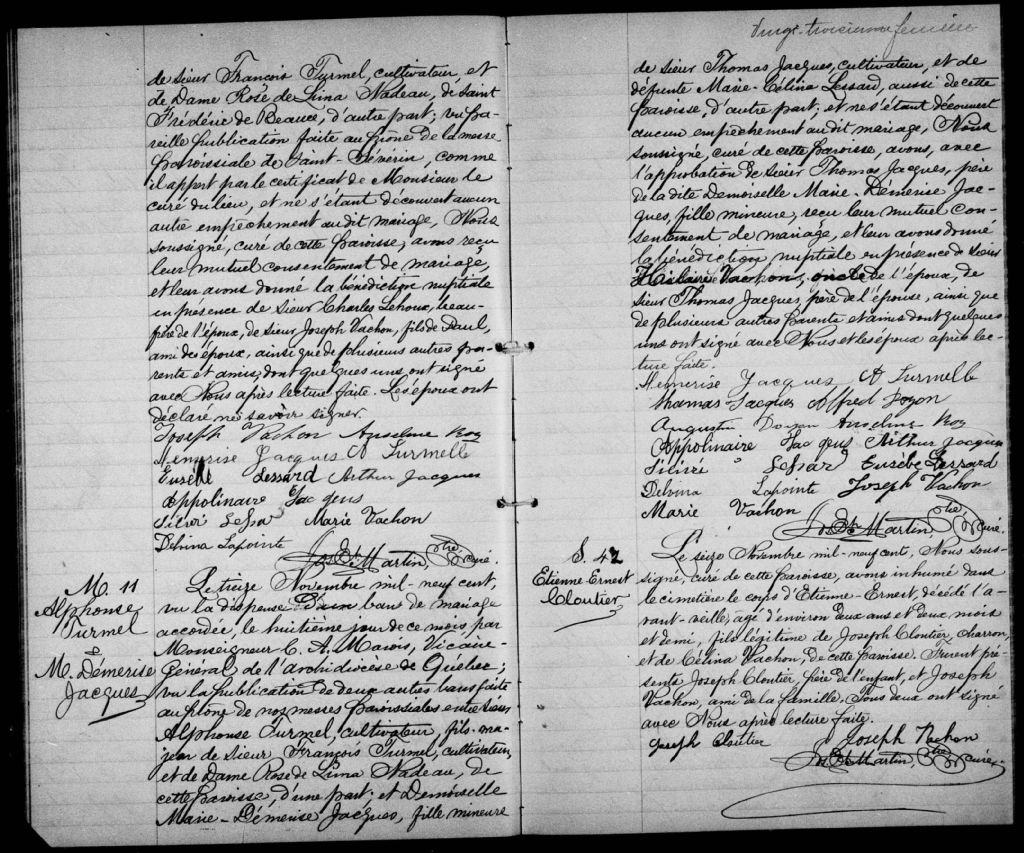 de Sieur François Turmel, cultivateur, et
de Dame Rose de Lima Nadeau, de Saint
Frédéric de Beauce, d'autre part; vu pa-
reille publication faite au prône de la messe
paroissiale de Saint-Séverin, comme
il appert par le certificat de Monsieur le
curé du lieu, et ne s'étant découvert aucun
autre empêchement au dit mariage, Nous
soussigné, curé de cette paroisse, avons reçu
leur mutuel consentement de mariage,
et leur avons donné la bénédiction nuptiale
en présence de Sieur Charles Lehoux, beau-
père de l'époux, de Sieur Joseph Vachon, fils de Paul,
ami des époux, ainsi que de plusieurs autres pa-
rents et amis, dont quelques uns ont signé
avec Nous après lecture faite. Les époux ont
déclaré ne savoir signer.
Joseph Vachon Anselme Roy
Demerise Jacques A Turmelle
Eusèbe Lessard Arthur Jacques
Appolinaire Jacques
Marie Vachon
Delvina Lapointe
Jos. Martin, Ptre Curé.
M. 11
Alphonse
Turmel
&
M. Démerise
Jacques
Le treize Novembre mil-neuf cent,
vu la dispense d'un banc de mariage
accordée, le huitième jour de ce mois par
Monseigneur C. A. Marois, Vicaire-
Général de l'archidiocèse de Québec;
vu la publication de deux autres bans faite
au prône de nos messes paroissiales entre Sieur
Alphonse Turmel, cultivateur, fils-ma-
jeur de Sieur François Turmel, cultivateur,
et de Dame Rose de Lima Nadeau, de
cette paroisse, d'une part; et Demoiselle
Marie-Démerise Jacques, fille mineure
vingt-troisième feuillet
de Sieur Thomas Jacques, cultivateur, et de
défunte Marie-Célina Lessard, aussi de cette
paroisse, d'autre part; et ne s'étant découvert
aucun empêchement au dit mariage, Nous
soussigné, curé de cette paroisse, avons, avec
l'approbation de Sieur Thomas Jacques, père
de la dite Demoiselle Marie-Démerise Jac-
ques, fille mineure, reçu leur mutuel con-
sentement de mariage, et leur avons donné
la bénédiction nuptiale en présence de Sieur
Vachon, oncle de l'époux, de
Sieur Thomas Jacques, père de l'épouse, ainsi que
de plusieurs autres parents et amis dont quelques
uns ont signé avec Nous et les époux après lec-
ture faite.
Demerise Jacques A Turmelle
Thomas Jacques Alfred
Augustin Anselme Roy
Appolinaire Jacques Arthur Jacques
Eusèbe Lessard
Delvina Lapointe Joseph Vachon
Marie Vachon
Jos. Martin, Ptre Curé.
S. 42
Etienne Ernest
Cloutier
Le seize Novembre mil-neuf cent, Nous sous-
signé, curé de cette paroisse, avons inhumé dans
le cimetière le corps d'Etienne-Ernest, décédé l'a-
vant-veille, agé d'environ deux ans et deux mois
et demi, fils légitime de Joseph Cloutier, charron,
et de Célina Vachon, de cette paroisse. Furent pré-
sents Joseph Cloutier, père de l'enfant, et Joseph
Vachon, ami de la famille. Tous deux ont signé
avec Nous après lecture faite.
Joseph Cloutier Joseph Vachon
Jos. Martin, Ptre Curé.